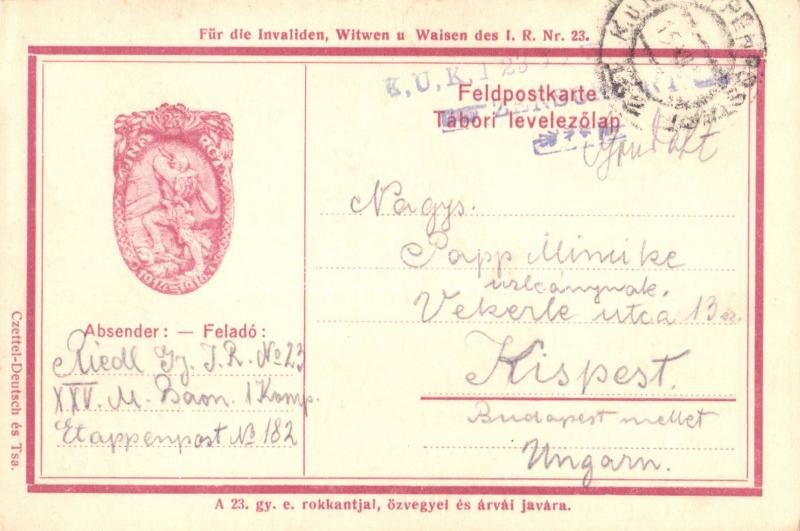 Für die Invaliden, Witwen u Waisen des I. R. Nr. 23.
K.U.K. I 23
Feldpostkarte
Tábori levelezőlap
23
1914-1916
Nagys.
Papp Minuke
urleánynak,
Vekerle utca 13 sz.
Kispest.
Budapest mellet
Ungarn.
Absender: — Feladó:
Riedl Gy. I.R. No 23
XXV. M. Baon. 1 Komp.
Etappenpost No 182
Czettel-Deutsch és Tsa.
A 23. gy. e. rokkantjai, özvegyei és árvái javára.